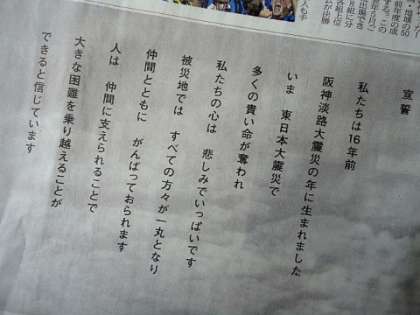 宣誓
私たちは16年前
阪神淡路大震災の年に生まれました
いま　東日本大震災で
多くの貴い命が奪われ
私たちの心は　悲しみでいっぱいです
被災地では　すべての方々が一丸となり
仲間とともに　がんばっておられます
人は　仲間に支えられることで
大きな困難を乗り越えることが
できると信じています